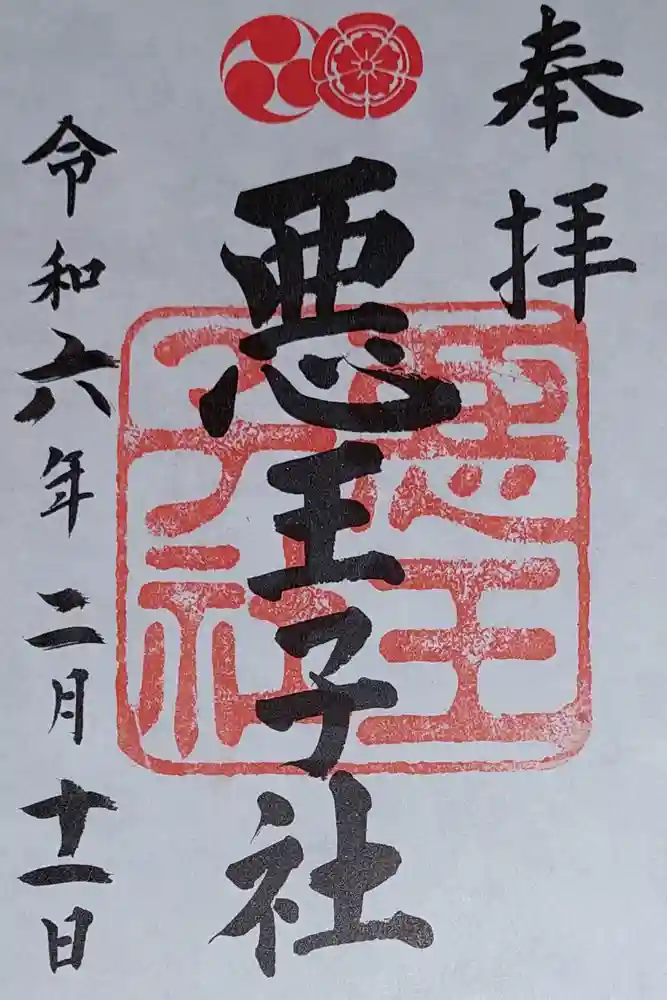 奉拝
悪王子社
悪王
子社
令和六年二月十一日